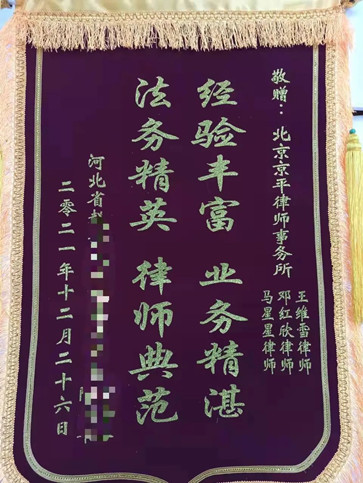 敬赠：北京京平律师事务所
王维雪律师
邓红欣律师
马星星律师
经验丰富 业务精湛
法务精英 律师典范
河北省
二零二一年十二月二十六日